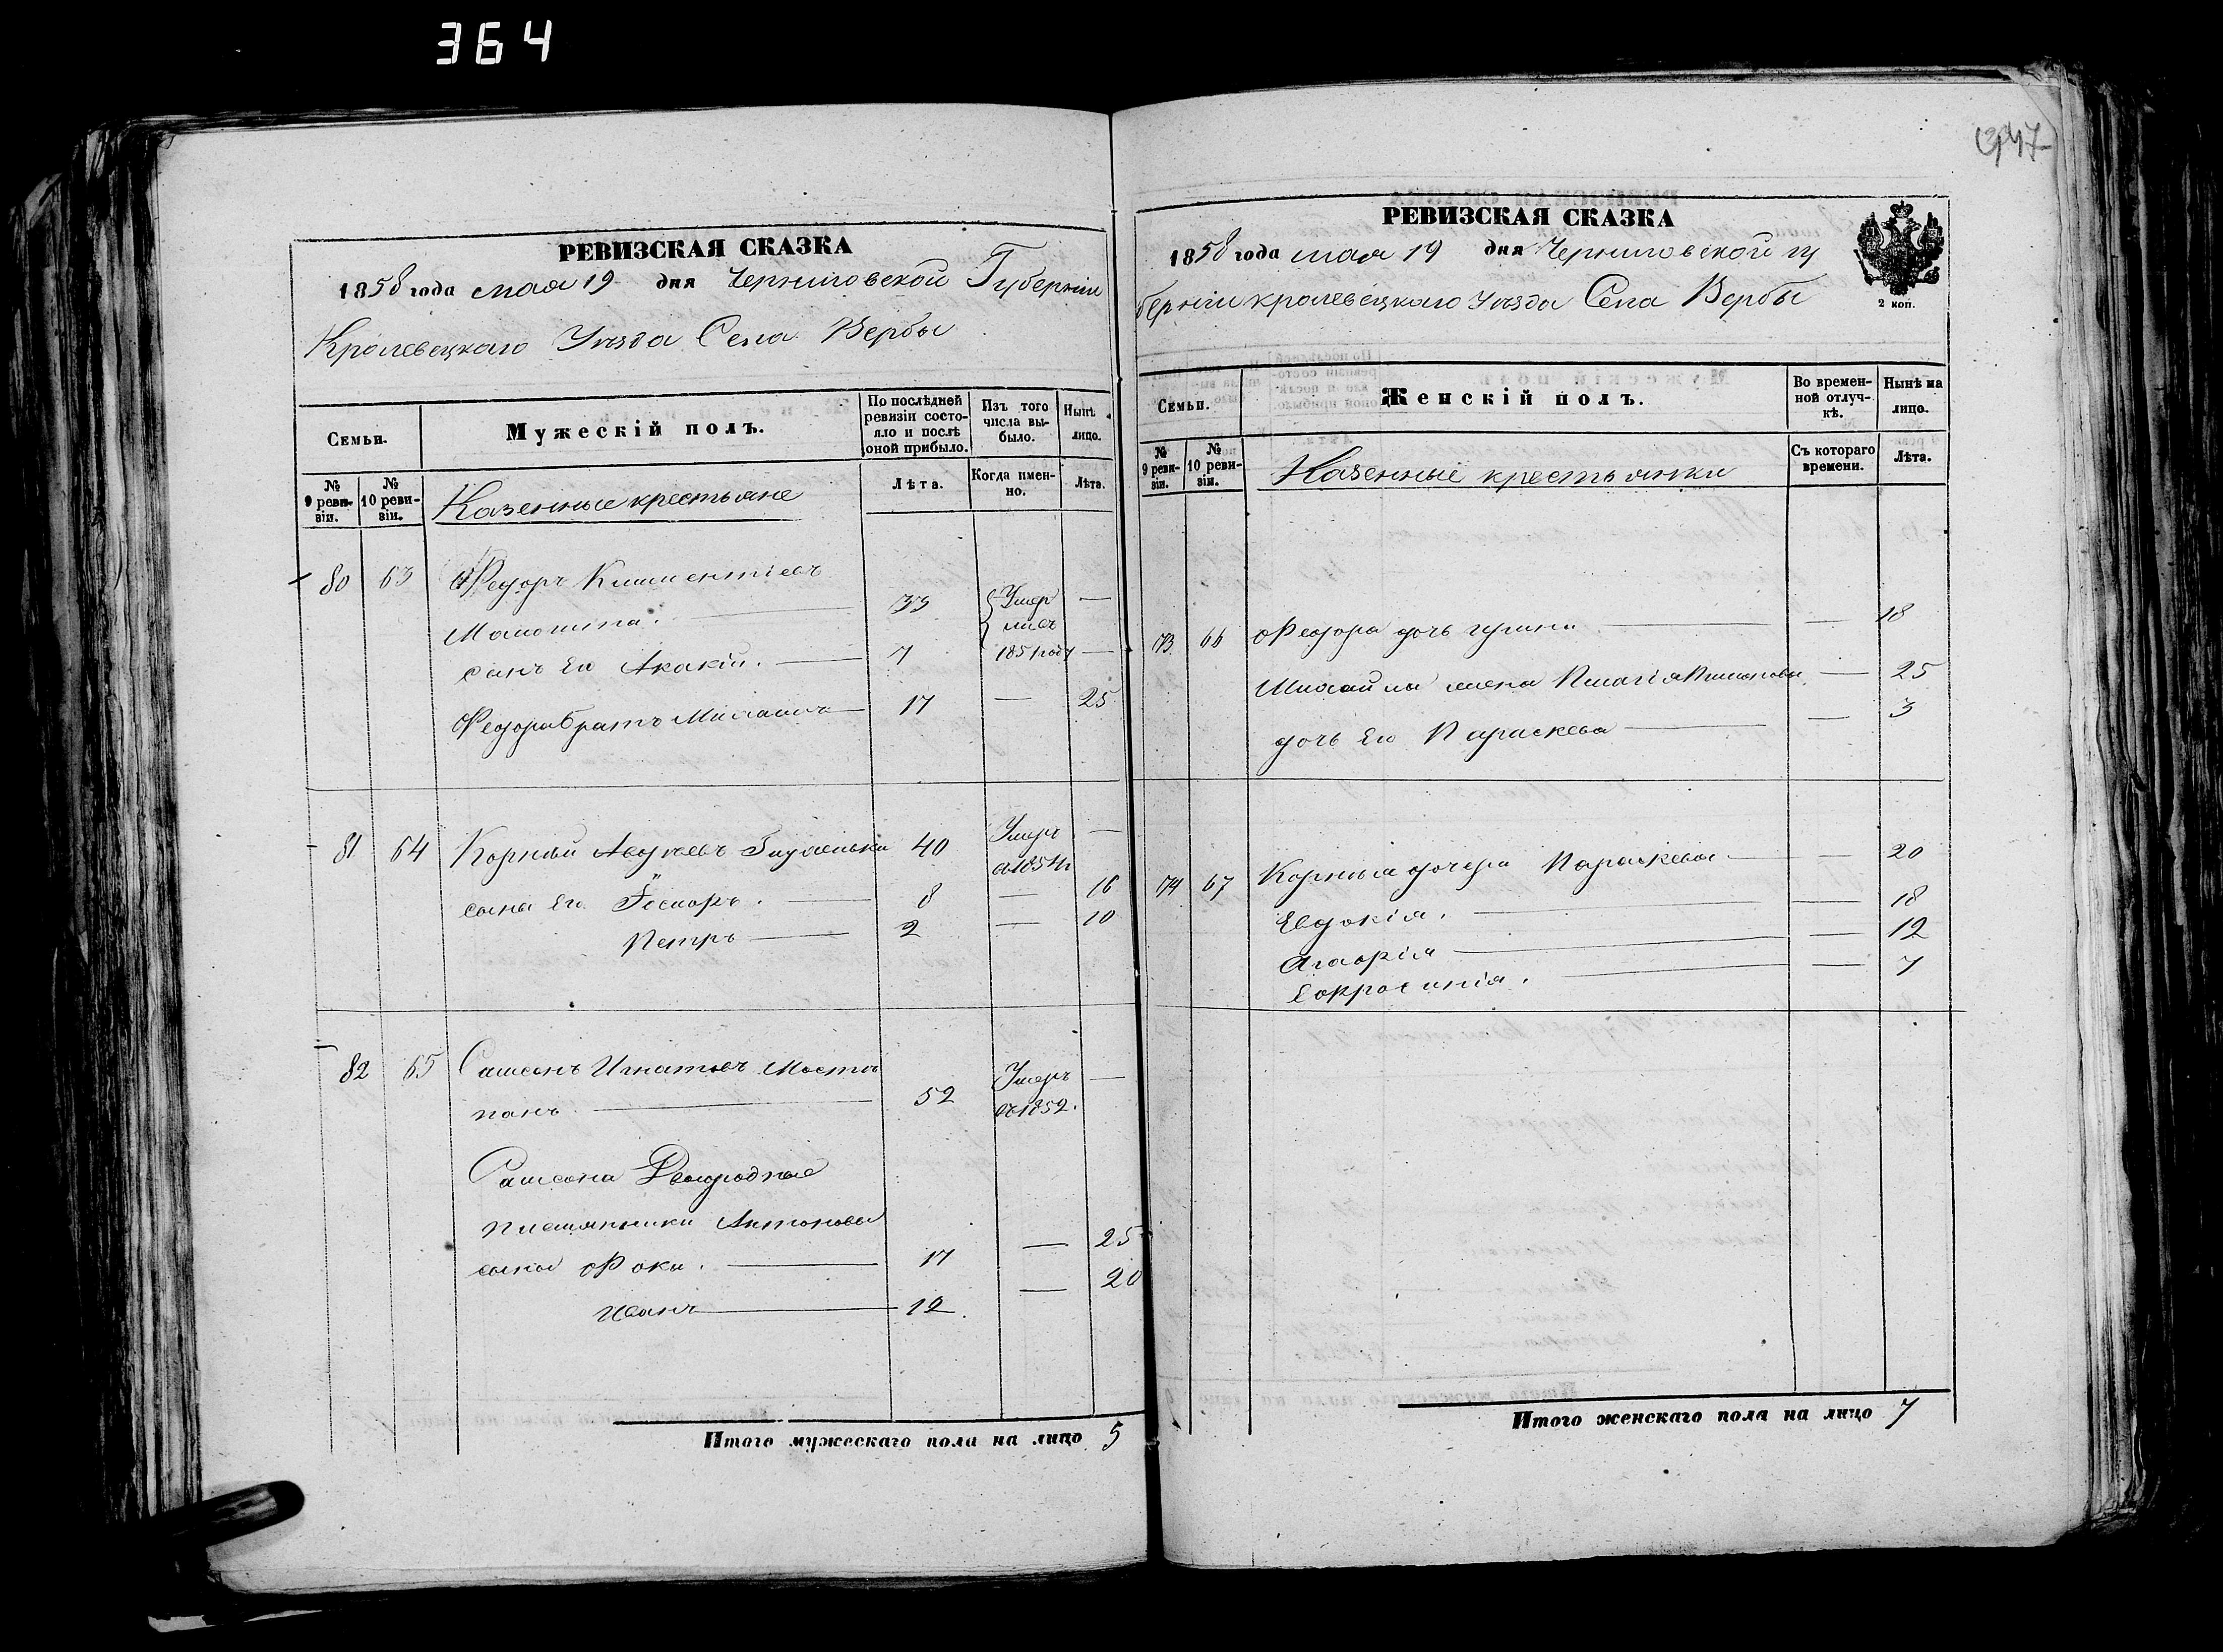 364
347
РЕВИЗСКАЯ СКАЗКА
1858 года мая 19 дня Черниговской Губерніи
Кролевецкаго Уѣзда Села Вербы
Семьи.
Мужескій полъ.
По послѣдней ревизіи состояло и послѣ оной прибыло.
Изъ того числа выбыло.
Нынѣ лицо.
№ 9 ревизіи.
№ 10 ревизіи.
Казенные крестьяне
Лѣта.
Когда именно.
Лѣта.
80 63 Федоръ
33 Умер
лисъ
сынъ Его Акакій. — 7 1851 году —
Федора братъ Михаилъ — 17 — 25
81 64 Корнѣй 40 Умеръ —
сыны Его 8 — 16
Петръ — 2 — 10
82 65 Самсонъ Игнатьевъ Мосто
панъ — 52 Умеръ —
въ 1852.
Самсона Двоюродные
племянники Антоновы
сыны Фока. — 17 — 25
Иванъ — 12. — 20
Итого мужескаго пола на лицо 5
РЕВИЗСКАЯ СКАЗКА
1858 года мая 19 дня Черниговской гу
берніи Кролевецкаго Уѣзда Села Вербы
2 коп.
Семьи.
Женскій полъ.
Во временной отлучкѣ.
Нынѣ на лицо.
№ 9 ревизіи.
№ 10 ревизіи.
Казенные крестьянки
Съ котораго времени.
Лѣта.
73 66 Федора дочь — — 18
Михайла жена — 25
дочь Его Параскева — — 3
74 67 Корнѣя дочери Параскева — — 20
Евдокія. — — 18
Агафія — — 12
Ефросинія. — — 7
Итого женскаго пола на лицо 7